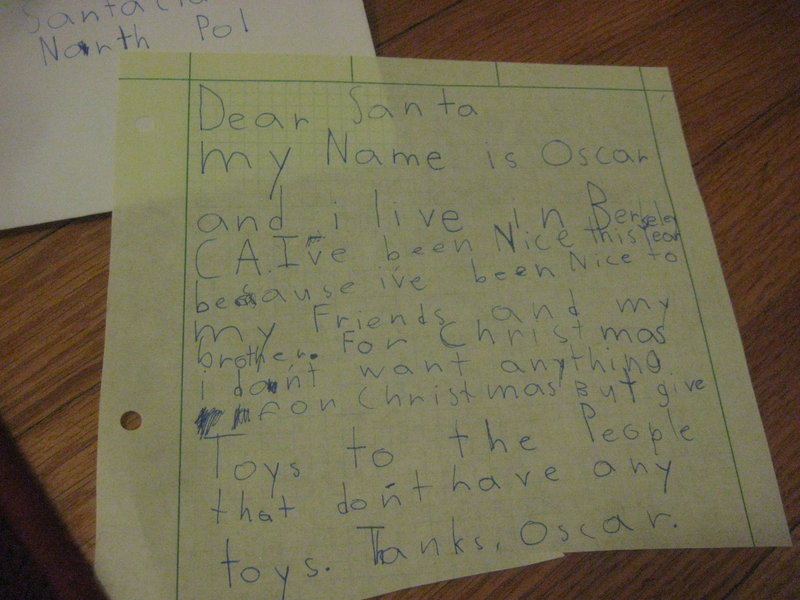 Santa Cla
North Pol
Dear Santa
my Name is Oscar
and i live in Berkeley
CA. I've been Nice this Year
because i've been Nice to
my Friends and my
brother. For Christmas
i don't want anything
for Christmas But give
Toys to the People
that don't have any
toys. Thanks, Oscar.